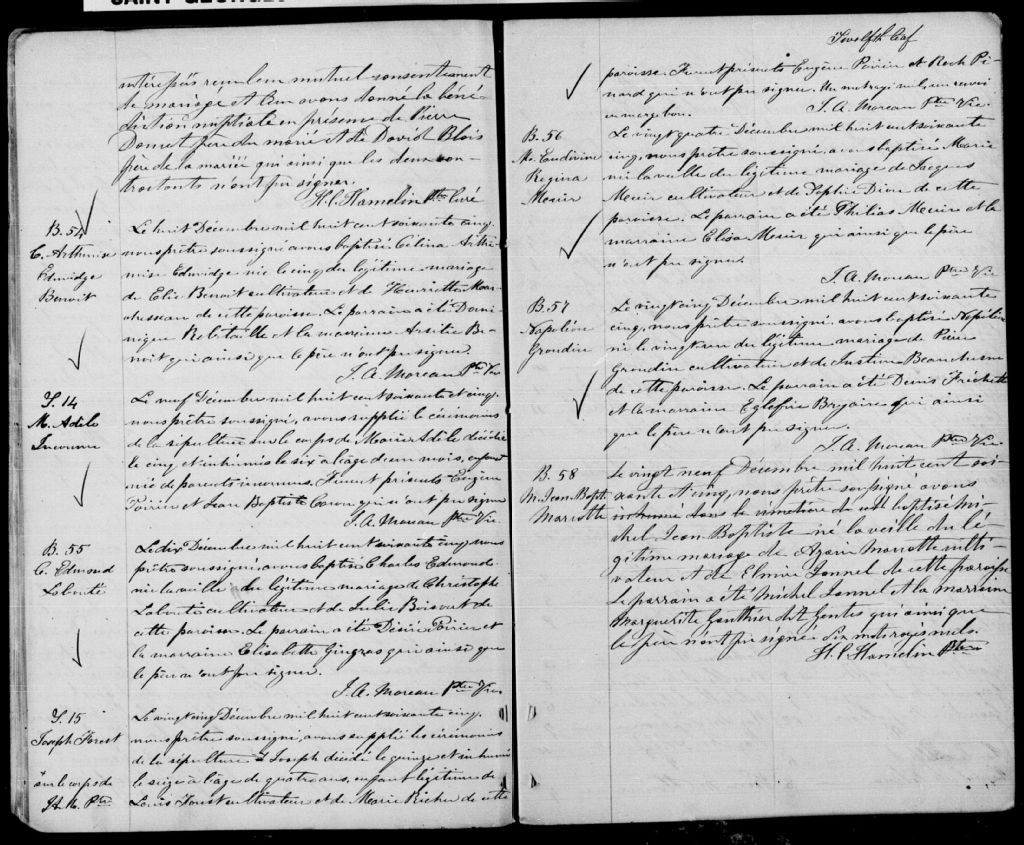 entre pas reçu leur mutuel consentement
de mariage et leur avons donné la béné-
diction nuptiale en présence de Pierre
père du marié et de David Blois
père de la mariée qui ainsi que les deux con-
tractants n'ont pu signer.
H. L. Hamelin Ptre Curé
B. 54
C. Arthemise
Edwidge
Benoit
Le huit Décembre mil huit cent soixante cinq,
nous prêtre soussigné avons baptisé Célina Arthé-
mise Edwidge née le cinq du légitime mariage
de Elie Benoit cultivateur et de Henriette
de cette paroisse. Le parrain a été Domi-
nique Robitaille et la marraine Be-
noit qui ainsi que le père n'ont pu signer.
J. A. Moreau Ptre Vic
S. 14
M. Adèle
Inconnu
Le neuf Décembre mil huit cent soixante et cinq,
nous prêtre soussigné, avons suppléé les cérémonies
de la sépulture sur le corps de Marie Adèle décédée
le cinq et inhumée le six à l'âge d'un mois, enfant
née de parents inconnus. Furent présents Eugène
Poirier et Jean Baptiste Caron qui n'ont pu signer
J. A. Moreau Ptre Vic
B. 55
C. Edmond
Labonté
Le dix Décembre mil huit cent soixante cinq, nous
prêtre soussigné, avons baptisé Charles Edmond
né la veille du légitime mariage de Christophe
Labonté cultivateur et de Julie Boisvert de
cette paroisse. Le parrain a été Désiré Poirier et
la marraine Elisabette Gingras qui ainsi que
le père n'ont pu signer.
J. A. Moreau Ptre Vic
S. 15
Joseph Forest
Le vingt cinq Décembre mil huit cent soixante cinq,
nous prêtre soussigné, avons suppléé les cérémonies
de la sépulture Joseph décédé le quinze et inhumé
le seize à l'âge de quatre ans, enfant légitime de
Louis Forest cultivateur et de Marie Richer de cette
sur le corps de
Ptre
Twelfth leaf
paroisse. Furent présents Eugène Poirier et Roch Pi-
nard qui n'ont pu signer. Un mot rayé nul, un renvoi
en marge bon.
J. A. Moreau Ptre Vic.
B. 56
M.
Regina
Le vingt quatre Décembre mil huit cent soixante
cinq, nous prêtre soussigné, avons baptisé Marie
née la veille du légitime mariage de Jacques
cultivateur et de Sophie Dion de cette
paroisse. Le parrain a été Philias et la
marraine Elisa qui ainsi que le père
n'ont pu signer.
J. A. Moreau Ptre Vic
B. 57
Napoléon
Grondin
Le vingt cinq Décembre mil huit cent soixante
cinq, nous prêtre soussigné, avons baptisé Napoléon
né le vingt du légitime mariage de Pierre
Grondin cultivateur et de Justine Beauchesne
de cette paroisse. Le parrain a été Denis Fréchette
et la marraine qui ainsi
que le père n'ont pu signer.
J. A. Moreau Ptre Vic
B. 58
M. Jean-Bapte
Marcotte
Le vingt neuf Décembre mil huit cent soi-
xante et cinq, nous prêtre soussigné avons
inhumé dans le cimetière de cet baptisé Mi-
chel Jean Baptiste né la veille du lé-
gitime mariage de Azarie Marcotte culti-
vateur et de Elmire de cette paroisse
Le parrain a été Michel et la marraine
Marguerite Gauthier qui ainsi que
le père n'ont pu signer. Six mots rayés nuls.
H. L. Hamelin Ptre